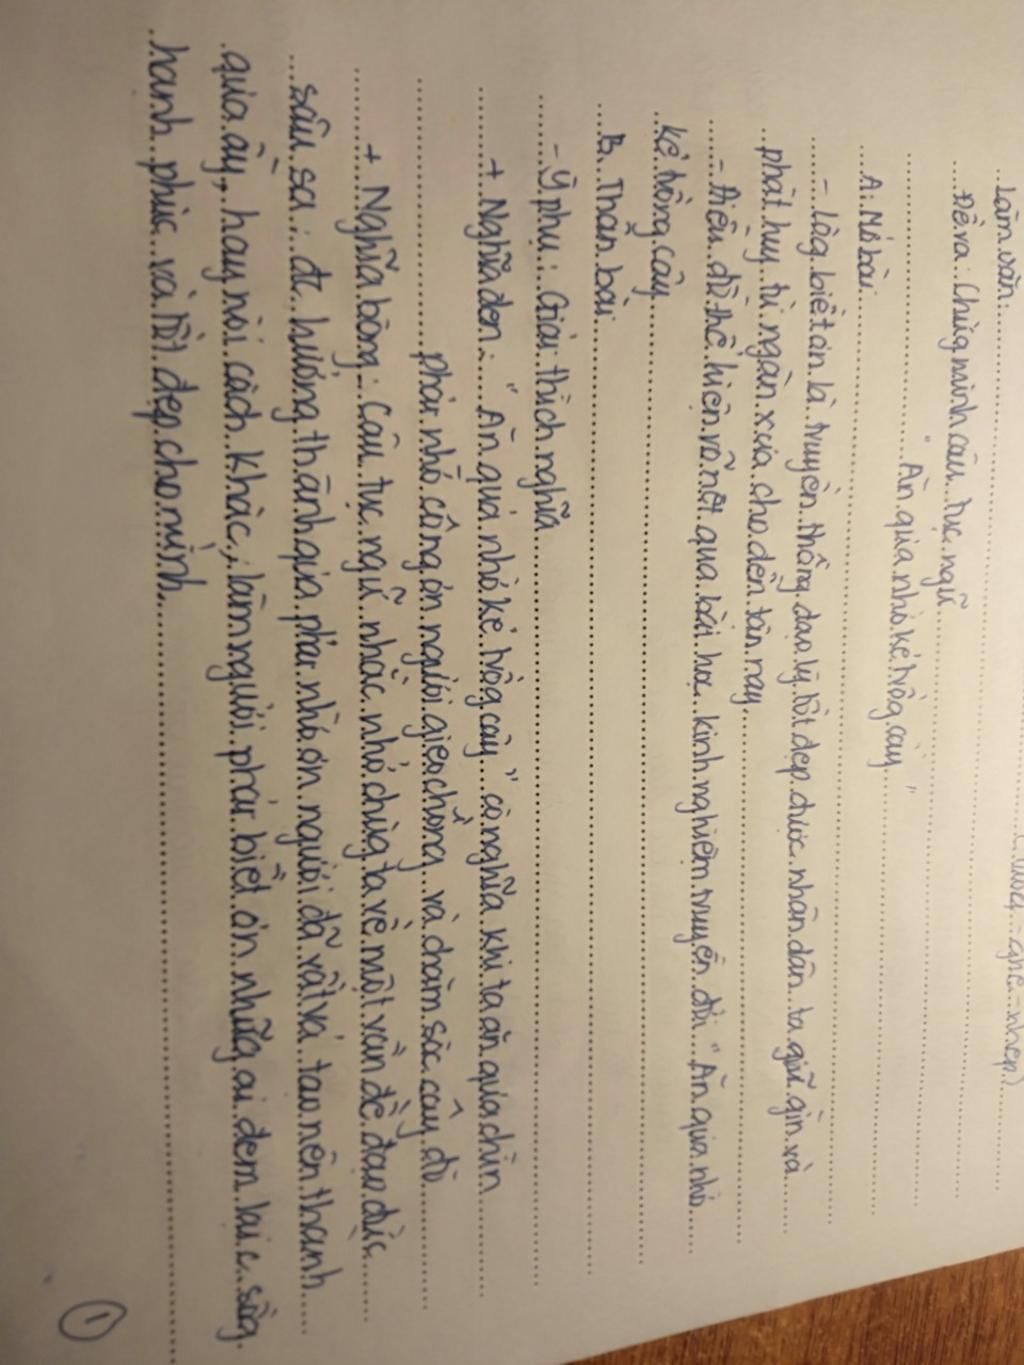 Làm văn:
Đề ra: Chứng minh câu tục ngữ
"Ăn quả nhớ kẻ trồng cây"
A: Mở bài
- Lòg biết ơn là truyền thống đạo lý tốt đẹp được nhân dân ta giữ gìn và
phát huy từ ngàn xưa cho đến tận nay
- Điều đó thể hiện rõ nét qua bài học kinh nghiệm truyền đời "Ăn quả nhớ
kẻ trồng cây
B. Thân bài
- Ý phụ: Giải thích nghĩa
+ Nghĩa đen: "Ăn quả nhớ kẻ trồg cây" có nghĩa khi ta ăn quả chín
phải nhớ công ơn người gieo trồng và chăm sóc cây đó
+ Nghĩa bóng: Câu tục ngữ nhắc nhở chúng ta về một vấn đề đạo đức
sâu sa: đc hưởng thành quả phải nhớ ơn người đã vất vả tạo nên thành
quả ấy, hay nói cách khác, làm người phải biết ơn những ai đem lại c. sống
hạnh phúc và tốt đẹp cho mình
1